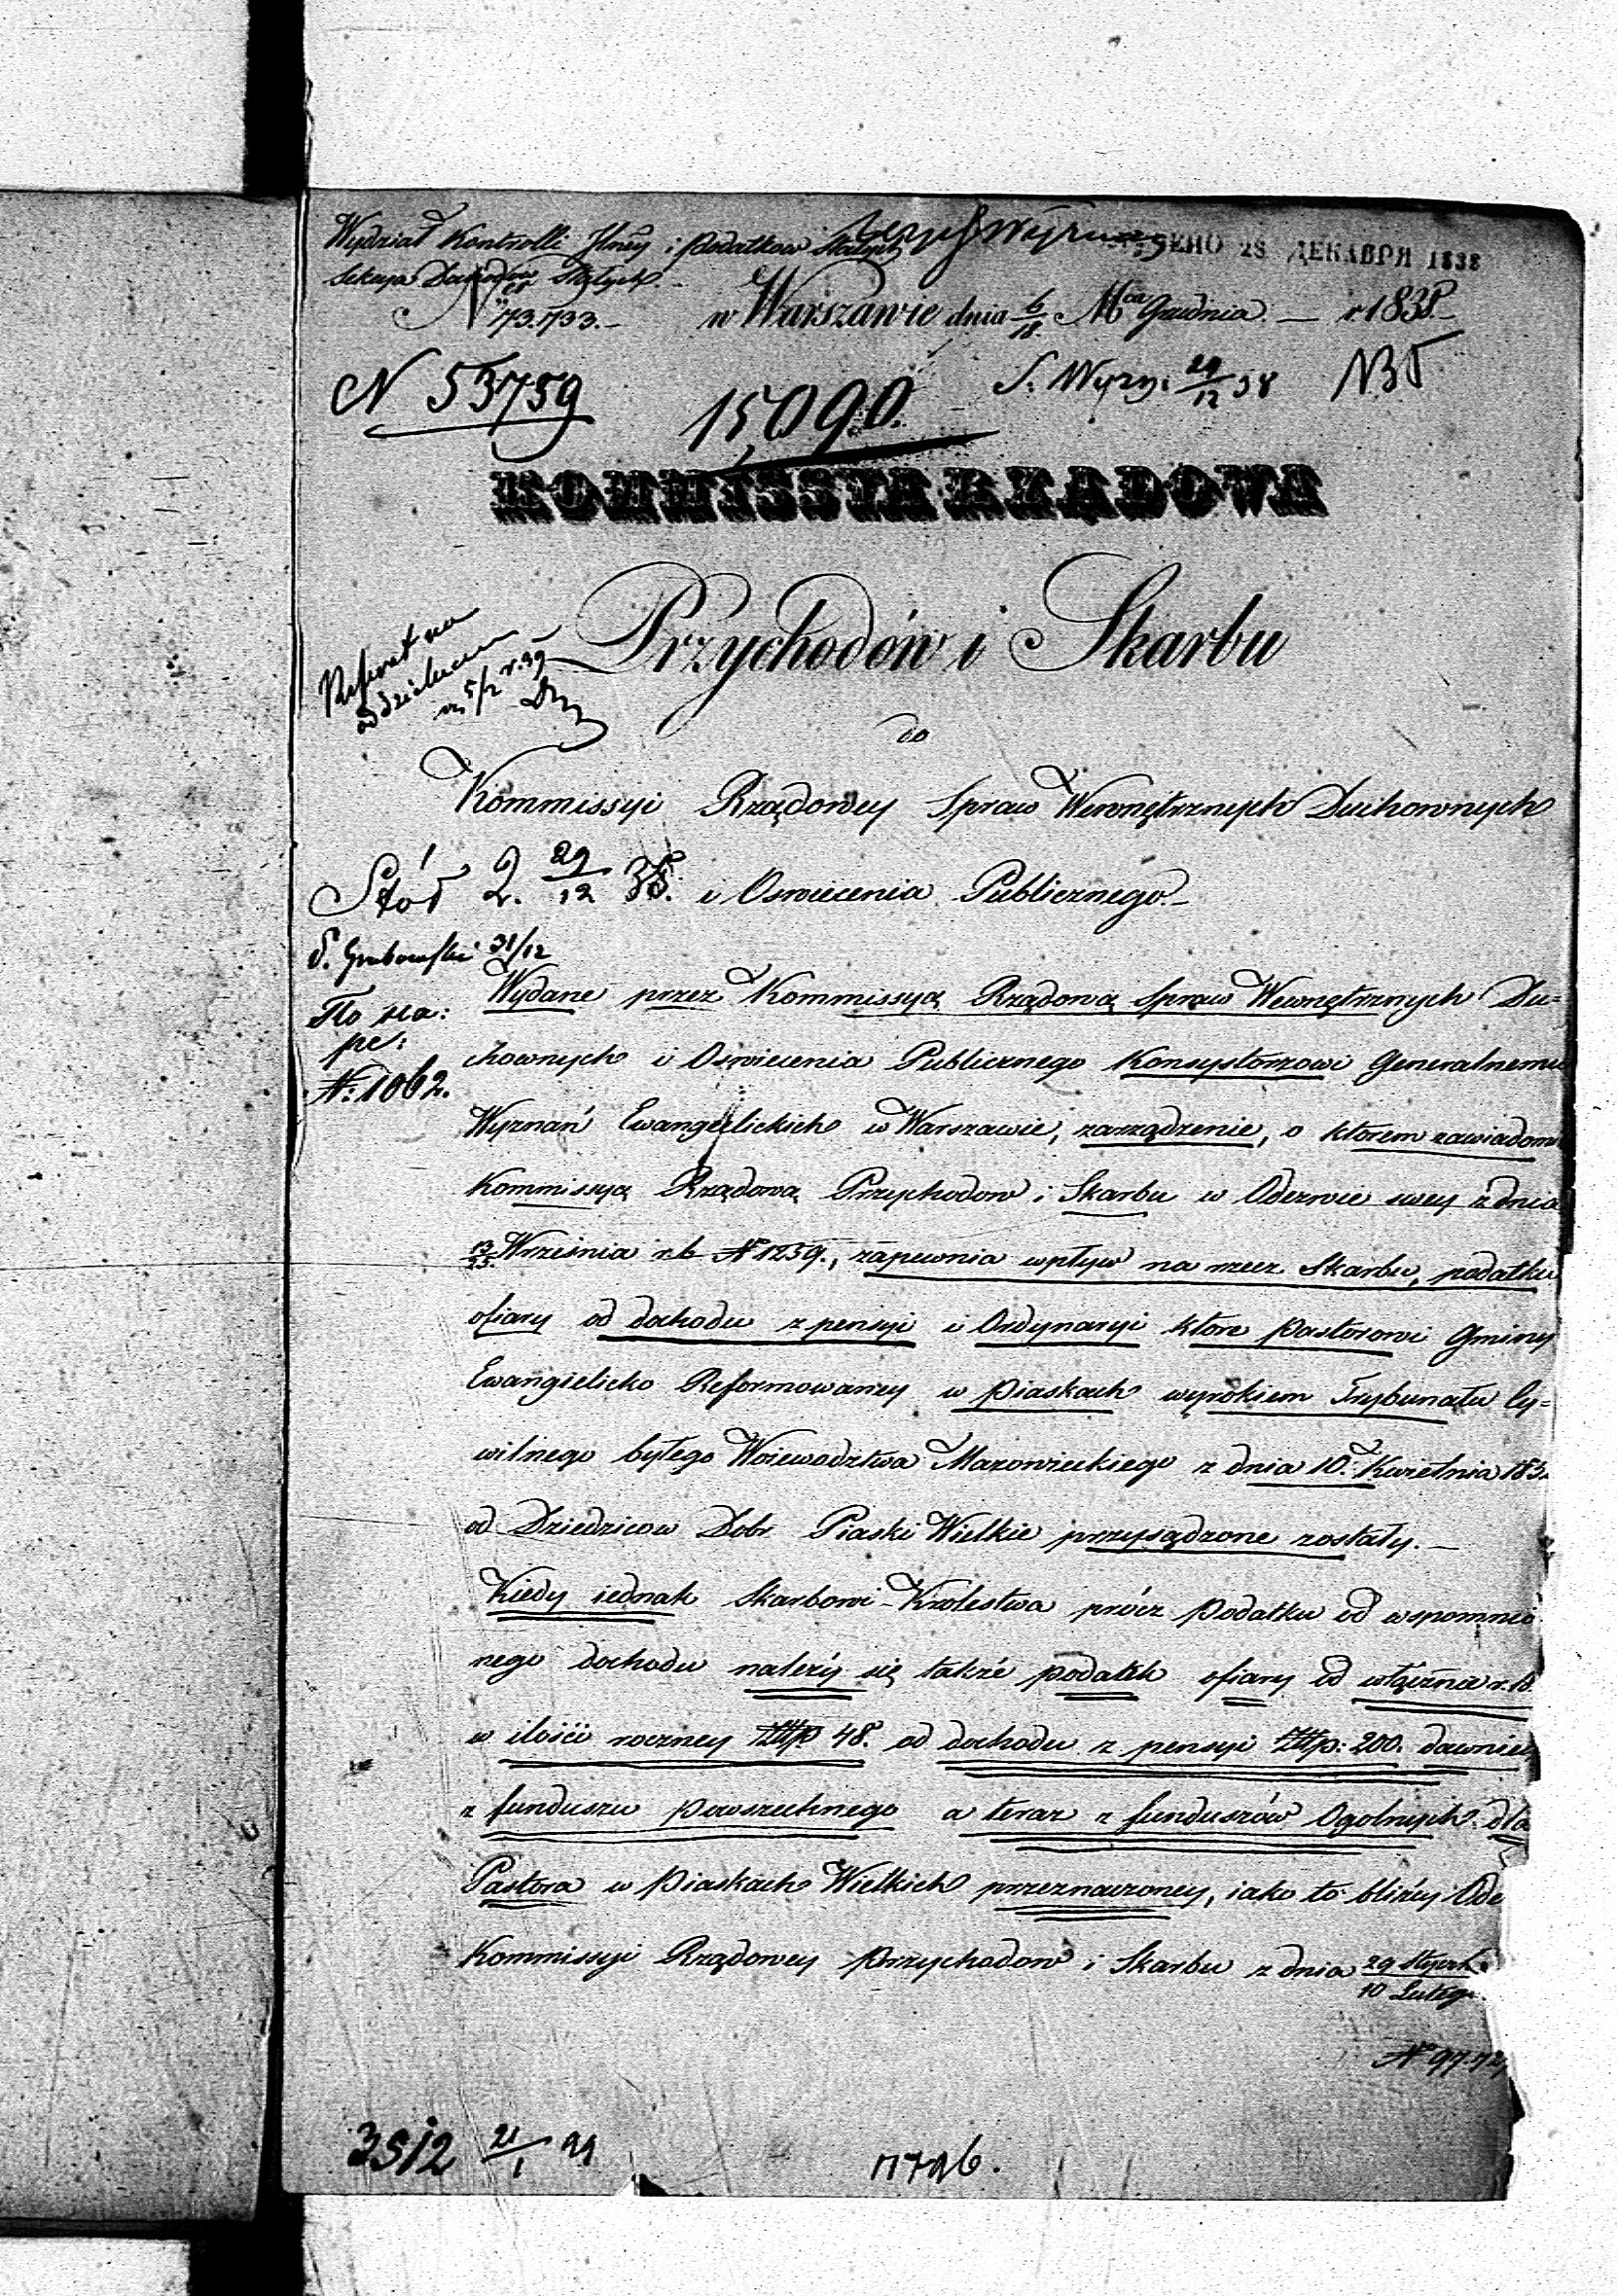 Wydział Kontrolli Jlney i Podatkow Stałych
Sekcya Dochodów Stałych.
ЕНО 28 ДЕКАБРЯ 1838
N 73.733.— w Warszawie dnia 6/18 Mca Grudnia. — r. 1838.
N 53759
15,090.
S. Wyzn: 29/12 38
KOMMISSYA RZĄDOWA
Przychodów i Skarbu
Referat na
oddzielnem
5/2 r. 39
do
Kommissyi Rządowey Spraw Wewnętrznych Duchownych
2. 29/12 38.
i Oswiecenia Publicznego.—
S. Grabowski 31/12
N: 1062.
Wydane przez Kommissyą Rządową Spraw Wewnętrznych Du=
chownych i Oswiecenia Publicznego Konsystorzowi Generalnemu
Wyznań Ewangelickich w Warszawie, zarządzenie, o ktorem zawiadom
Kommissyą Rządową Przychodow i Skarbu w Odezwie swey z dnia
13/25. Września r.b. N 1259., zapewnia wpływ na rzecz Skarbu, podatku
ofiary od dochodu z pensyi i Ordynaryi ktore Pastorowi Gminy
Ewangielicko Reformowaney w Piaskach wyrokiem Trybunału Cy=
wilnego byłego Woiewodztwa Mazowieckiego z dnia 10. Kwietnia 183
od Dziedzicow Dobr Piaski Wielkie przysądzone zostały.—
Kiedy iednak Skarbowi Krolestwa prócz Podatku od wspomnio
nego dochodu należy się także podatek ofiary od włącznie r. 18
w ilości roczney Złłp. 48. od dochodu z pensyi Złłp: 200. dawniey
z funduszu Powszechnego a teraz z funduszów Ogolnych dla
Pastora w Piaskach Wielkich przeznaczoney, iako to bliżey Ode
Kommissyi Rządowey Przychodow i Skarbu z dnia 29 Styczn/10 Lutego
N 97.72
3512 21/1